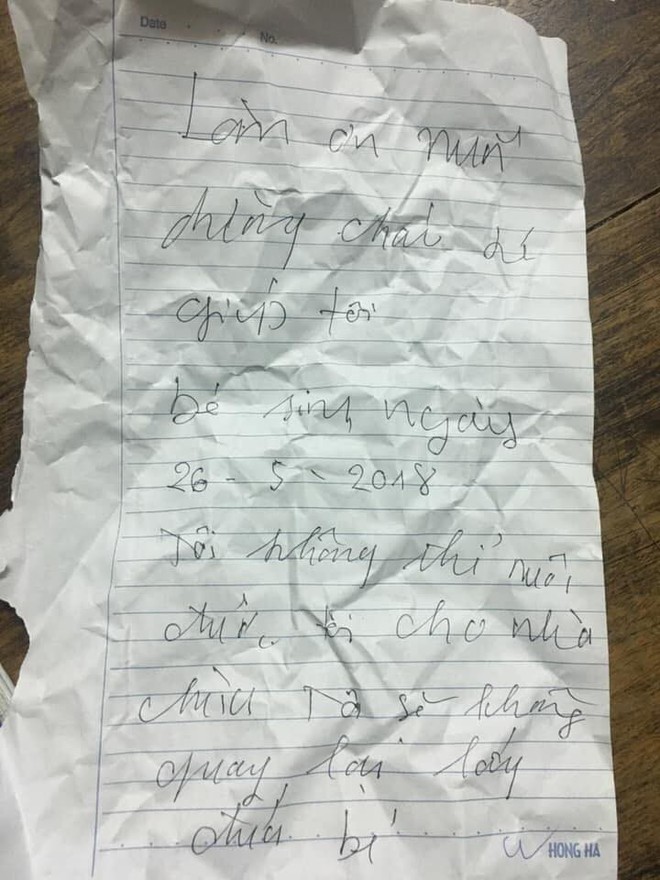 Date No.
Làm ơn nuôi
chàng chai bé
giúp tôi
bé sinh ngày
26 - 5 - 2018
Tôi không thể nuôi
được tôi cho nhà
chùa Tôi sẽ không
quay lại lấy
đứa bé
HONG HA